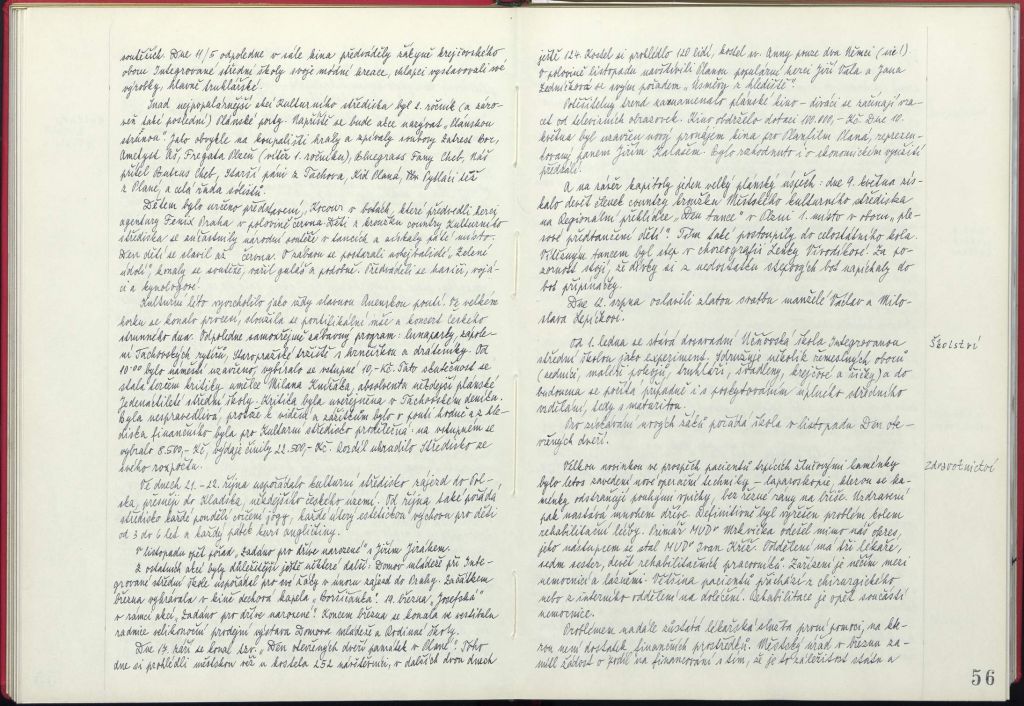 soutěžích. Dne 11/5 odpoledne v sále kina předváděly žákyně krejčovského
oboru Integrované střední školy svoje módní kreace, chlapci vystavovali své
výrobky, hlavně truhlářské.
Snad nejpopulárnější akcí Kulturního střediska byl 2. ročník (a záro-
veň také poslední) Plánské porty. Napříště se bude akce nazývat „Plánskou
strunou". Jako obvykle na koupališti hrály a zpívaly soubory
Ametyst Aš, Fregata Plzeň (vítěz 1. ročníku), Bluegrass Fany Cheb, Náš
přítel Cheb, Starší páni z Tachova, Kid Planá, Pytláci též
z Plané, a celá řada sólistů.
Dětem bylo určeno představení „Kocour v botách", které předvedli herci
agentury Fenix Praha v polovině června. Děti z kroužku country Kulturního
střediska se zúčastnily národní soutěže v tancích a získaly páté místo.
Den dětí se slavil už června. O zábavu se postarali nohejbalisté „Zelené
údolí", konaly se soutěže, vařil guláš a podobně. Předváděli se hasiči, vojá-
ci a kynologové.
Kulturní léto vyvrcholilo jako vždy slavnou Anenskou poutí. Ve velkém
horku se konalo procesí, sloužila se pontifikální mše a koncert českého
strunného dua. Odpoledne samozřejmě zábavný program: lunaparky, zápole-
ní Tachovských rytířů, Staropražské tržiště s hrnčířkou a dráteníky. Od
10.00 bylo náměstí uzavřeno, vybíralo se vstupné 10,-Kč. Tato skutečnost se
stala terčem kritiky umělce Milana Knížáka, absolventa někdejší plánské
Jedenáctileté střední školy. Kritika byla uveřejněna v Tachovském deníku.
Byla nespravedlivá, protože k vidění a zážitkům bylo v pouti hodně a z hle-
diska finančního byla pro Kulturní středisko prodělečná: na vstupném se
vybralo 8.500,-Kč, výdaje činily 22.500,-Kč. Rozdíl uhradilo Středisko ze
svého rozpočtu.
Ve dnech 21.-22. října uspořádalo kulturní středisko zájezd do Pol-
ska, přesněji do Kladska, někdejšího českého území. Od října také pořádá
středisko každé pondělí cvičení jógy, každé úterý estetickou výchovu pro děti
od 3 do 6 let a každý pátek kurs angličtiny.
V listopadu opět pořad „Zadáno pro dříve narozené" s Jiřím Jiráňem.
Z ostatních akcí byly důležitější ještě některé další: Domov mládeže při Inte-
grované střední škole uspořádal pro své žáky v únoru zájezd do Prahy. Začátkem
března vyhrávala v kině dechová kapela „Boršičanka". 19. března „Josefská"
v rámci akcí „Zadáno pro dříve narozené". Koncem března se konala ve vestibulu
radnice velikonoční prodejní výstava Domova mládeže a Rodinné školy.
Dne 17. září se konal tzv. „Den otevřených dveří památek v Plané". Toho
dne si prohlédli městskou věž u kostela 252 návštěvníci, v dalších dvou dnech
ještě 124. Kostel si prohlédlo 120 lidí, kostel sv. Anny pouze dva Němci (sic!).
V polovině listopadu navštívili Planou populární herci Jiří Vala a Jana
se svým pořadem „Úsměvy z hlediště".
Potěšitelný trend zaznamenalo plánské kino – diváci se začínají vra-
cet od televizních obrazovek. Kino obdrželo dotaci 100.000,-Kč. Dne 10.
května byl uzavřen nový pronájem kina pro Planfilm Planá, reprezen-
tovaný panem Jiřím Kalašem. Bylo rozhodnuto i o ekonomickém využití
předsálí.
A na závěr kapitoly jeden velký plánský úspěch: dne 9. května zís-
kalo devět členek country kroužku Městského kulturního střediska
na Regionální přehlídce „Den tance" v Plzni 1. místo v oboru „ple-
sové předtančení dětí". Tím také postoupily do celostátního kola.
Vítězným tancem byl step v choreografii Lenky Vírodikové. Za po-
zornost stojí, že dívky si z nedostatku stepových bot napíchaly do
bot připínáčky.
Dne 12. srpna oslavili zlatou svatbu manželé Václav a Milo-
slava Lepičkovi.
Od 1. ledna se stává dosavadní Učňovská škola Integrovanou
střední školou jako experiment. Sdružuje několik řemeslných oborů
(zedníci, malíři pokojů, truhláři, švadleny, krejčové a šičky) a do
budoucna se počítá případně i s poskytováním úplného středního
vzdělání, tedy s maturitou.
Pro získávání nových žáků pořádá škola v listopadu Den ote-
vřených dveří.
Velkou novinkou ve prospěch pacientů trpících žlučovými kaménky
bylo letos zavedení nové operační techniky – laparoskopie, kterou se ka-
ménky odstraňují pouhými vpichy, bez řezné rány na břiše. Uzdravení
pak nastává mnohem dříve. Definitivně byl vyřešen problém kolem
rehabilitační léčby. Primář MUDr Mrkvička odešel mimo náš okres,
jeho nástupcem se stal MUDr Ivan Kříž. Oddělení má tři lékaře,
sedm sester, devět rehabilitačních pracovníků. Zařízení je něčím mezi
nemocnicí a lázněmi. Většina pacientů přichází z chirurgického
nebo z interního oddělení na doléčení. Rehabilitace je opět součástí
nemocnice.
Problémem nadále zůstává lékařská služba první pomoci, na kte-
rou není dostatek finančních prostředků. Městský úřad v březnu za-
mítl žádost o podíl na financování s tím, že je to záležitost státu a
Školství
Zdravotnictví
56